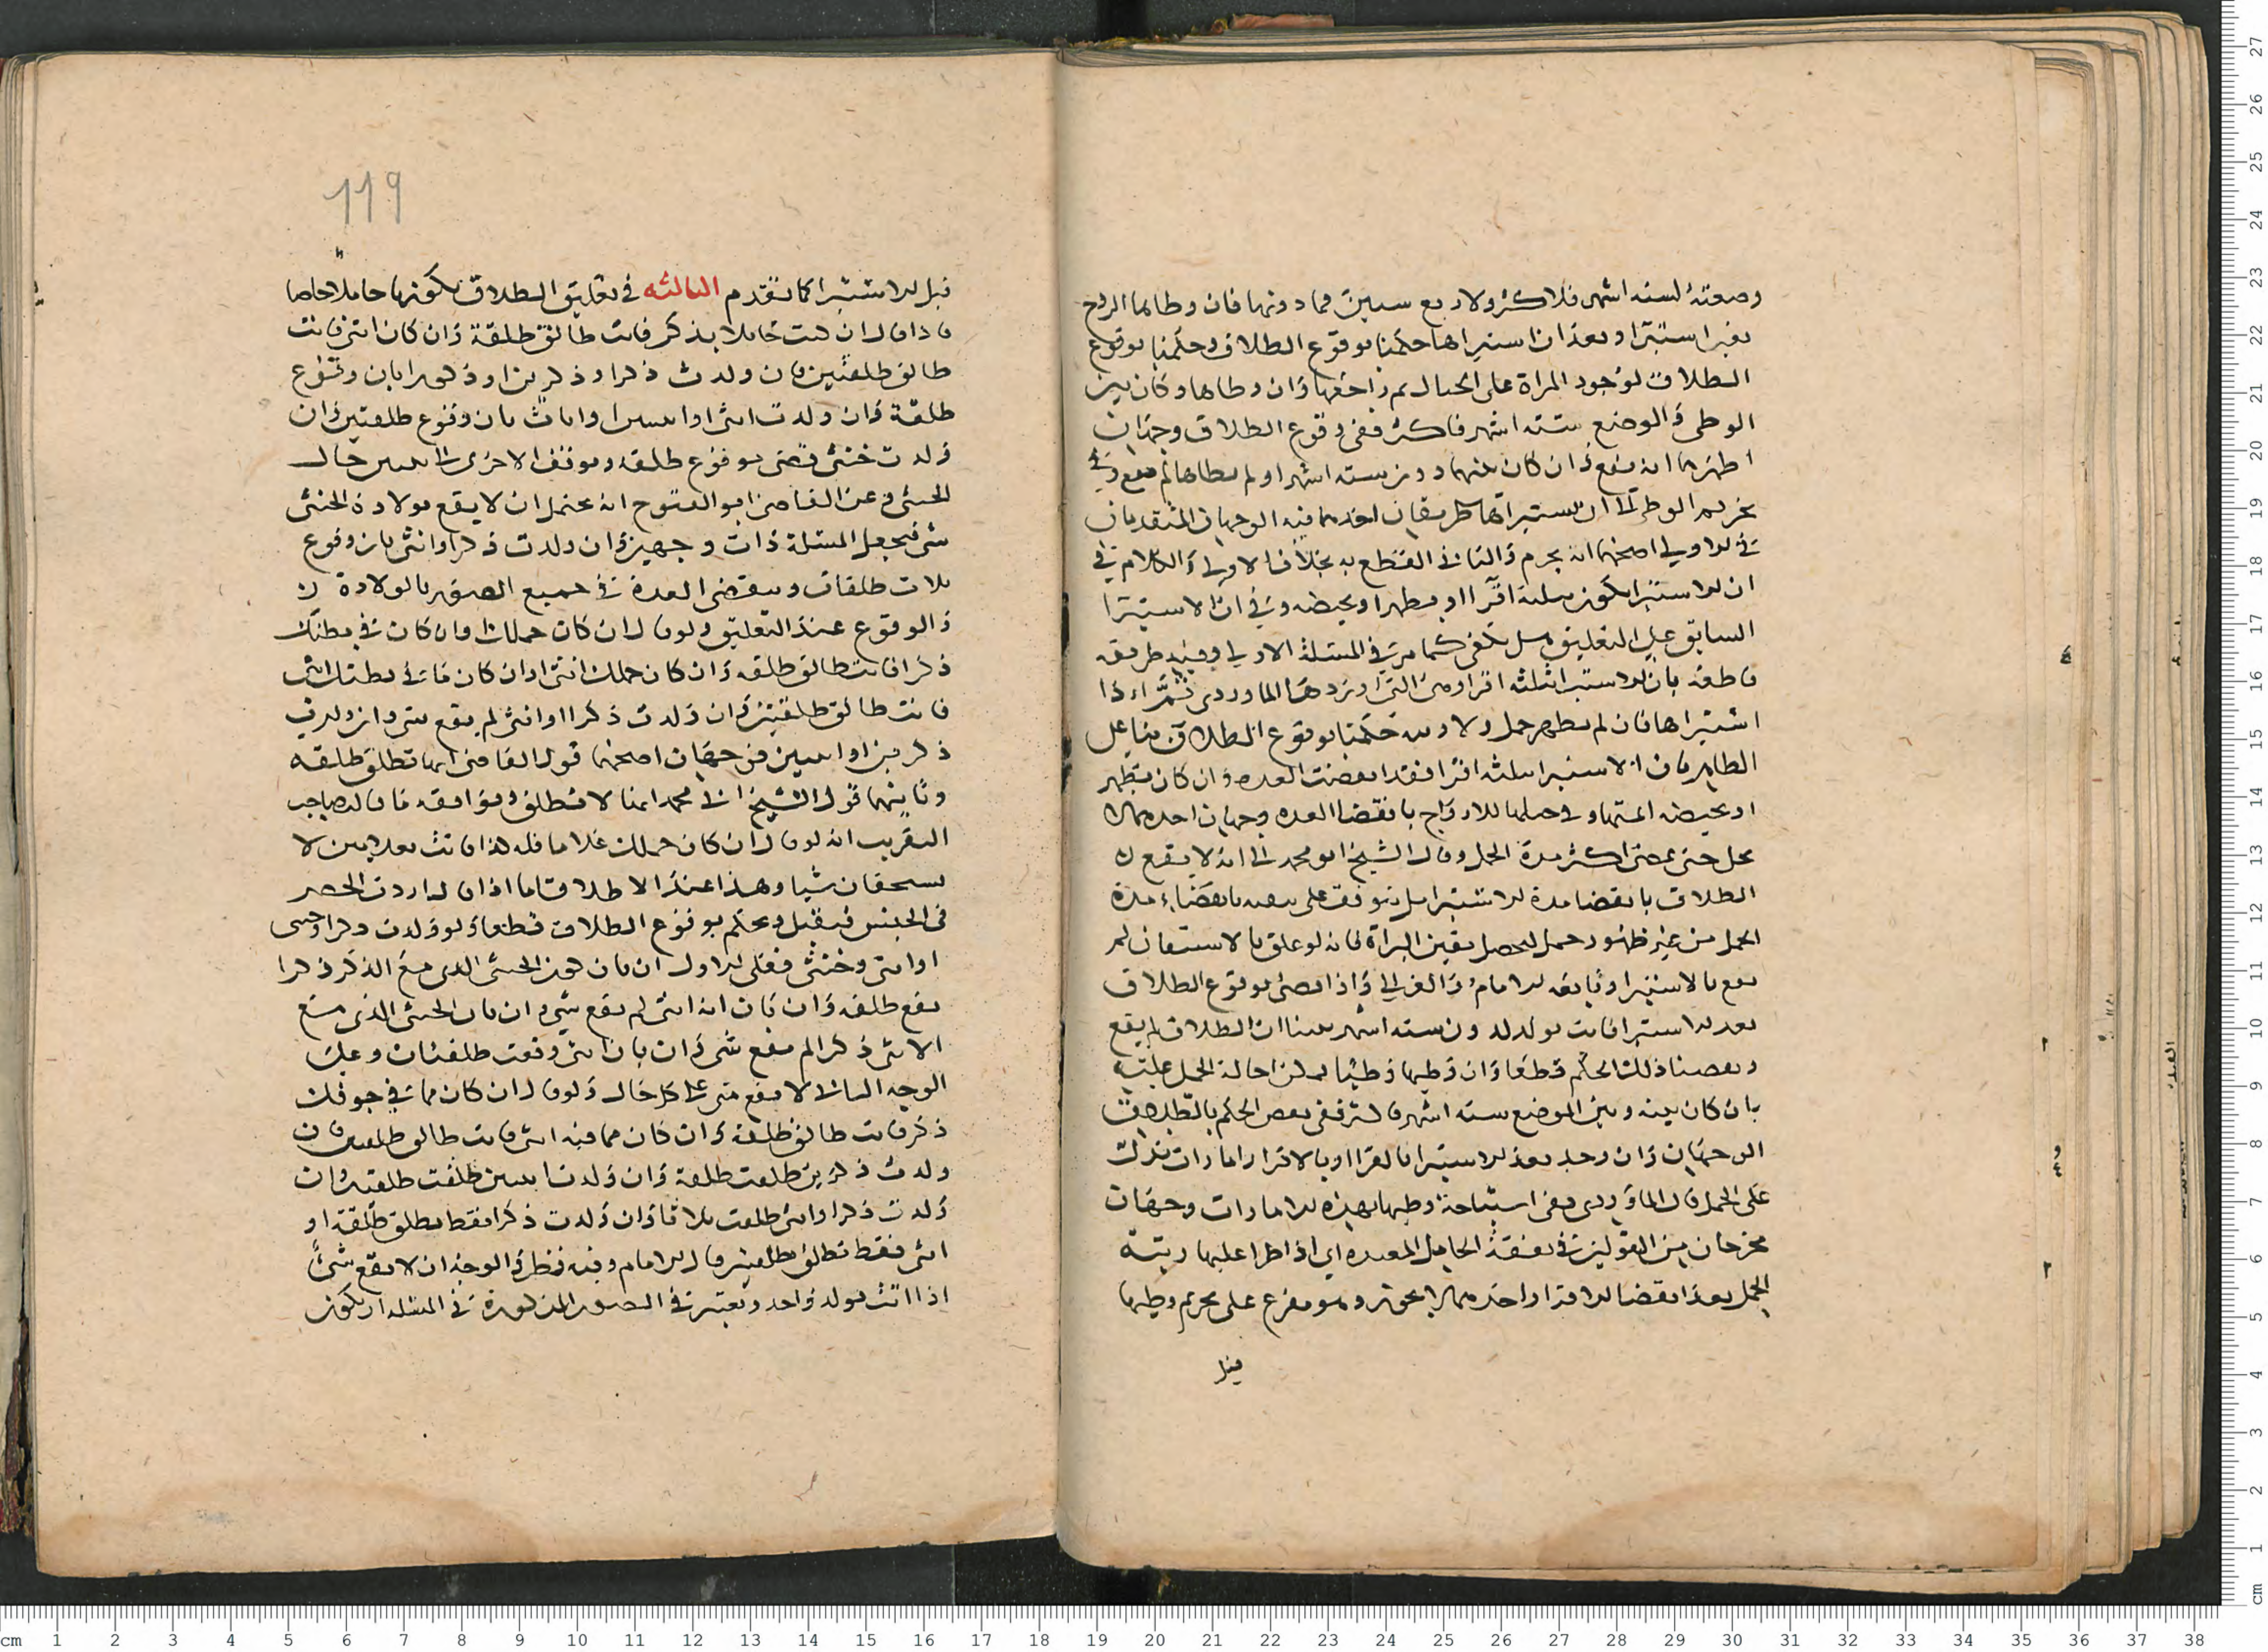 وضعته لسته اشهر فلاكثر ولاربع سنين فما دونها فان وطاها الزوج
بغير استبرا وبعد ان استبراها حكمنا بوقوع الطلاق وحكمنا بوقوع
الطلاق لوجود المراة على الحبال ثم راجعها وان وطاها وكان بين
الوطى والوضع ستة اشهر فاكثر ففى وقوع الطلاق وجهان
اظهرهما انه يقع وان كان بينهما دون سته اشهر او لم يطاها لم يقع وفى
تحريم الوطى الى ان يستبراها طريقان احدهما فيه الوجهان المتقدمان
فى الاولى اصحهما انه يحرم والثانى القطع به بخلاف الاولى والكلام فى
ان الاستبرا يكون بثلثه اقرا او بطهر او بحيضه وفى ان الاستبرا
السابق على التعليق هل يكفى كما مر فى المسئلة الاولى وفيه طريقه
قاطعه بان الاستبرا بثلثه اقرا وهى التى اوردها الماوردى ثم اذا
استبراها فان لم يظهر حمل ولا ريبه حكمنا بوقوع الطلاق بنا على
الظاهر فان الاستبرا بثلثه اقرا فقد انقضت العده وان كان بطهر
او بحيضه اتمتها وفى حلها للازواج بانقضا العده وجهان احدهما لا
تحل حتى تمضى اكثر مدة الحمل وقال الشيخ ابو محمد الى انه لا يقع
الطلاق بانقضا مدة الاستبرا بل يتوقف على بانقضاء مدة
الحمل من غير ظهور حمل ليحصل يقين البراة كما انه لو علق بالاستيقان لم
يقع بالاستبرا وتابعه الامام والغزالى واذا قضى بوقوع الطلاق
بعد الاستبرا فاتت بولد لدون سته اشهر بينا ان الطلاق لم يقع
ونقضنا ذلك الحكم قطعا وان وطيها وطيا يمكن احالة الحمل عليه
بان كان بينه وبين الوضع سته اشهر فاكثر ففى نقض الحكم بالطلاق
الوجهان وان وجد بعد الاستبرا بالقرا او بالاقرا امارات تدل
على الحمل قال الماوردى ففى استباحة وطيها بهذه الامارات وجهان
مخرجان من القولين فى نفقة الحامل المعتده اى اذا طرا عليها ريبة
الحمل بعد انقضا الاقرا واحدهما لا يجوز وهو مفرع على تحريم وطيها
قبل
119
قبل الاستبرا كما تقدم الثالثه فى تعليق الطلاق بكونها حاملا خاصا
فاذا قال ان كنت حاملا بذكر فانت طالق طلقة وان كان انثى فانت
طالق طلقتين فان ولدت ذكرا او ذكرين او ذكورا بان وقوع
طلقة وان ولدت انثى او انثيين او اناث بان وقوع طلقتين وان
ولدت خنثى قضى بوقوع طلقه وتوقف الاخرى الى تبين حال
الخنثى وعن القاضى ابو الفتوح انه يحتمل ان لا يقع بولادة الخنثى
شى فيجعل المسئلة ذات وجهين وان ولدت ذكرا وانثى بان وقوع
ثلاث طلقات وتنقضى العدة فى جميع الصور بالولادة
والوقوع عند التعليق ولو قال ان كان حملك او ان كان فى بطنك
ذكرا فانت طالق طلقه وان كان حملك انثى او ان كان ما فى بطنك انثى
فانت طالق طلقتين وان ولدت ذكرا وانثى لم يقع شى وان ولدت
ذكرين او انثيين فوجهان اصحهما قول القاضى انها تطلق طلقه
وثانيهما قول الشيخ ابى محمد انها لا تطلق ويوافقه ما قاله صاحب
التقريب انه لو قال ان كان حملك غلاما فله كذا فاتت بغلامين لا
يستحقان شيا وهذا عند الاطلاق اما اذا قال اردت الحصر
فى الجنس فيقبل ويحكم بوقوع الطلاق قطعا ولو ولدت ذكرا وخنثى
او انثى وخنثى فعلى الاول ان بان كون الخنثى الذى مع الذكر ذكرا
يقع طلقه وان بان انه انثى لم يقع شى وان بان الخنثى الذى مع
الانثى ذكرا لم يقع شى وان بان انثى وقعت طلقتان وعلى
الوجه الثانى لا يقع شى على كل حال ولو قال ان كان مما فى جوفك
ذكر فانت طالق طلقة وان كان مما فيه انثى فانت طالق طلقتين فان
ولدت ذكرين طلقت طلقة وان ولدت انثيين طلقت طلقتين وان
ولدت ذكرا وانثى طلقت ثلاثا وان ولدت ذكرا فقط تطلق طلقة او
انثى فقط تطلق طلقتين قال الامام وفيه نظر والوجه ان لا يقع شئ
اذا اتت بولد واحد ويعتبر فى الصور المذكورة فى المسئله ان يكون